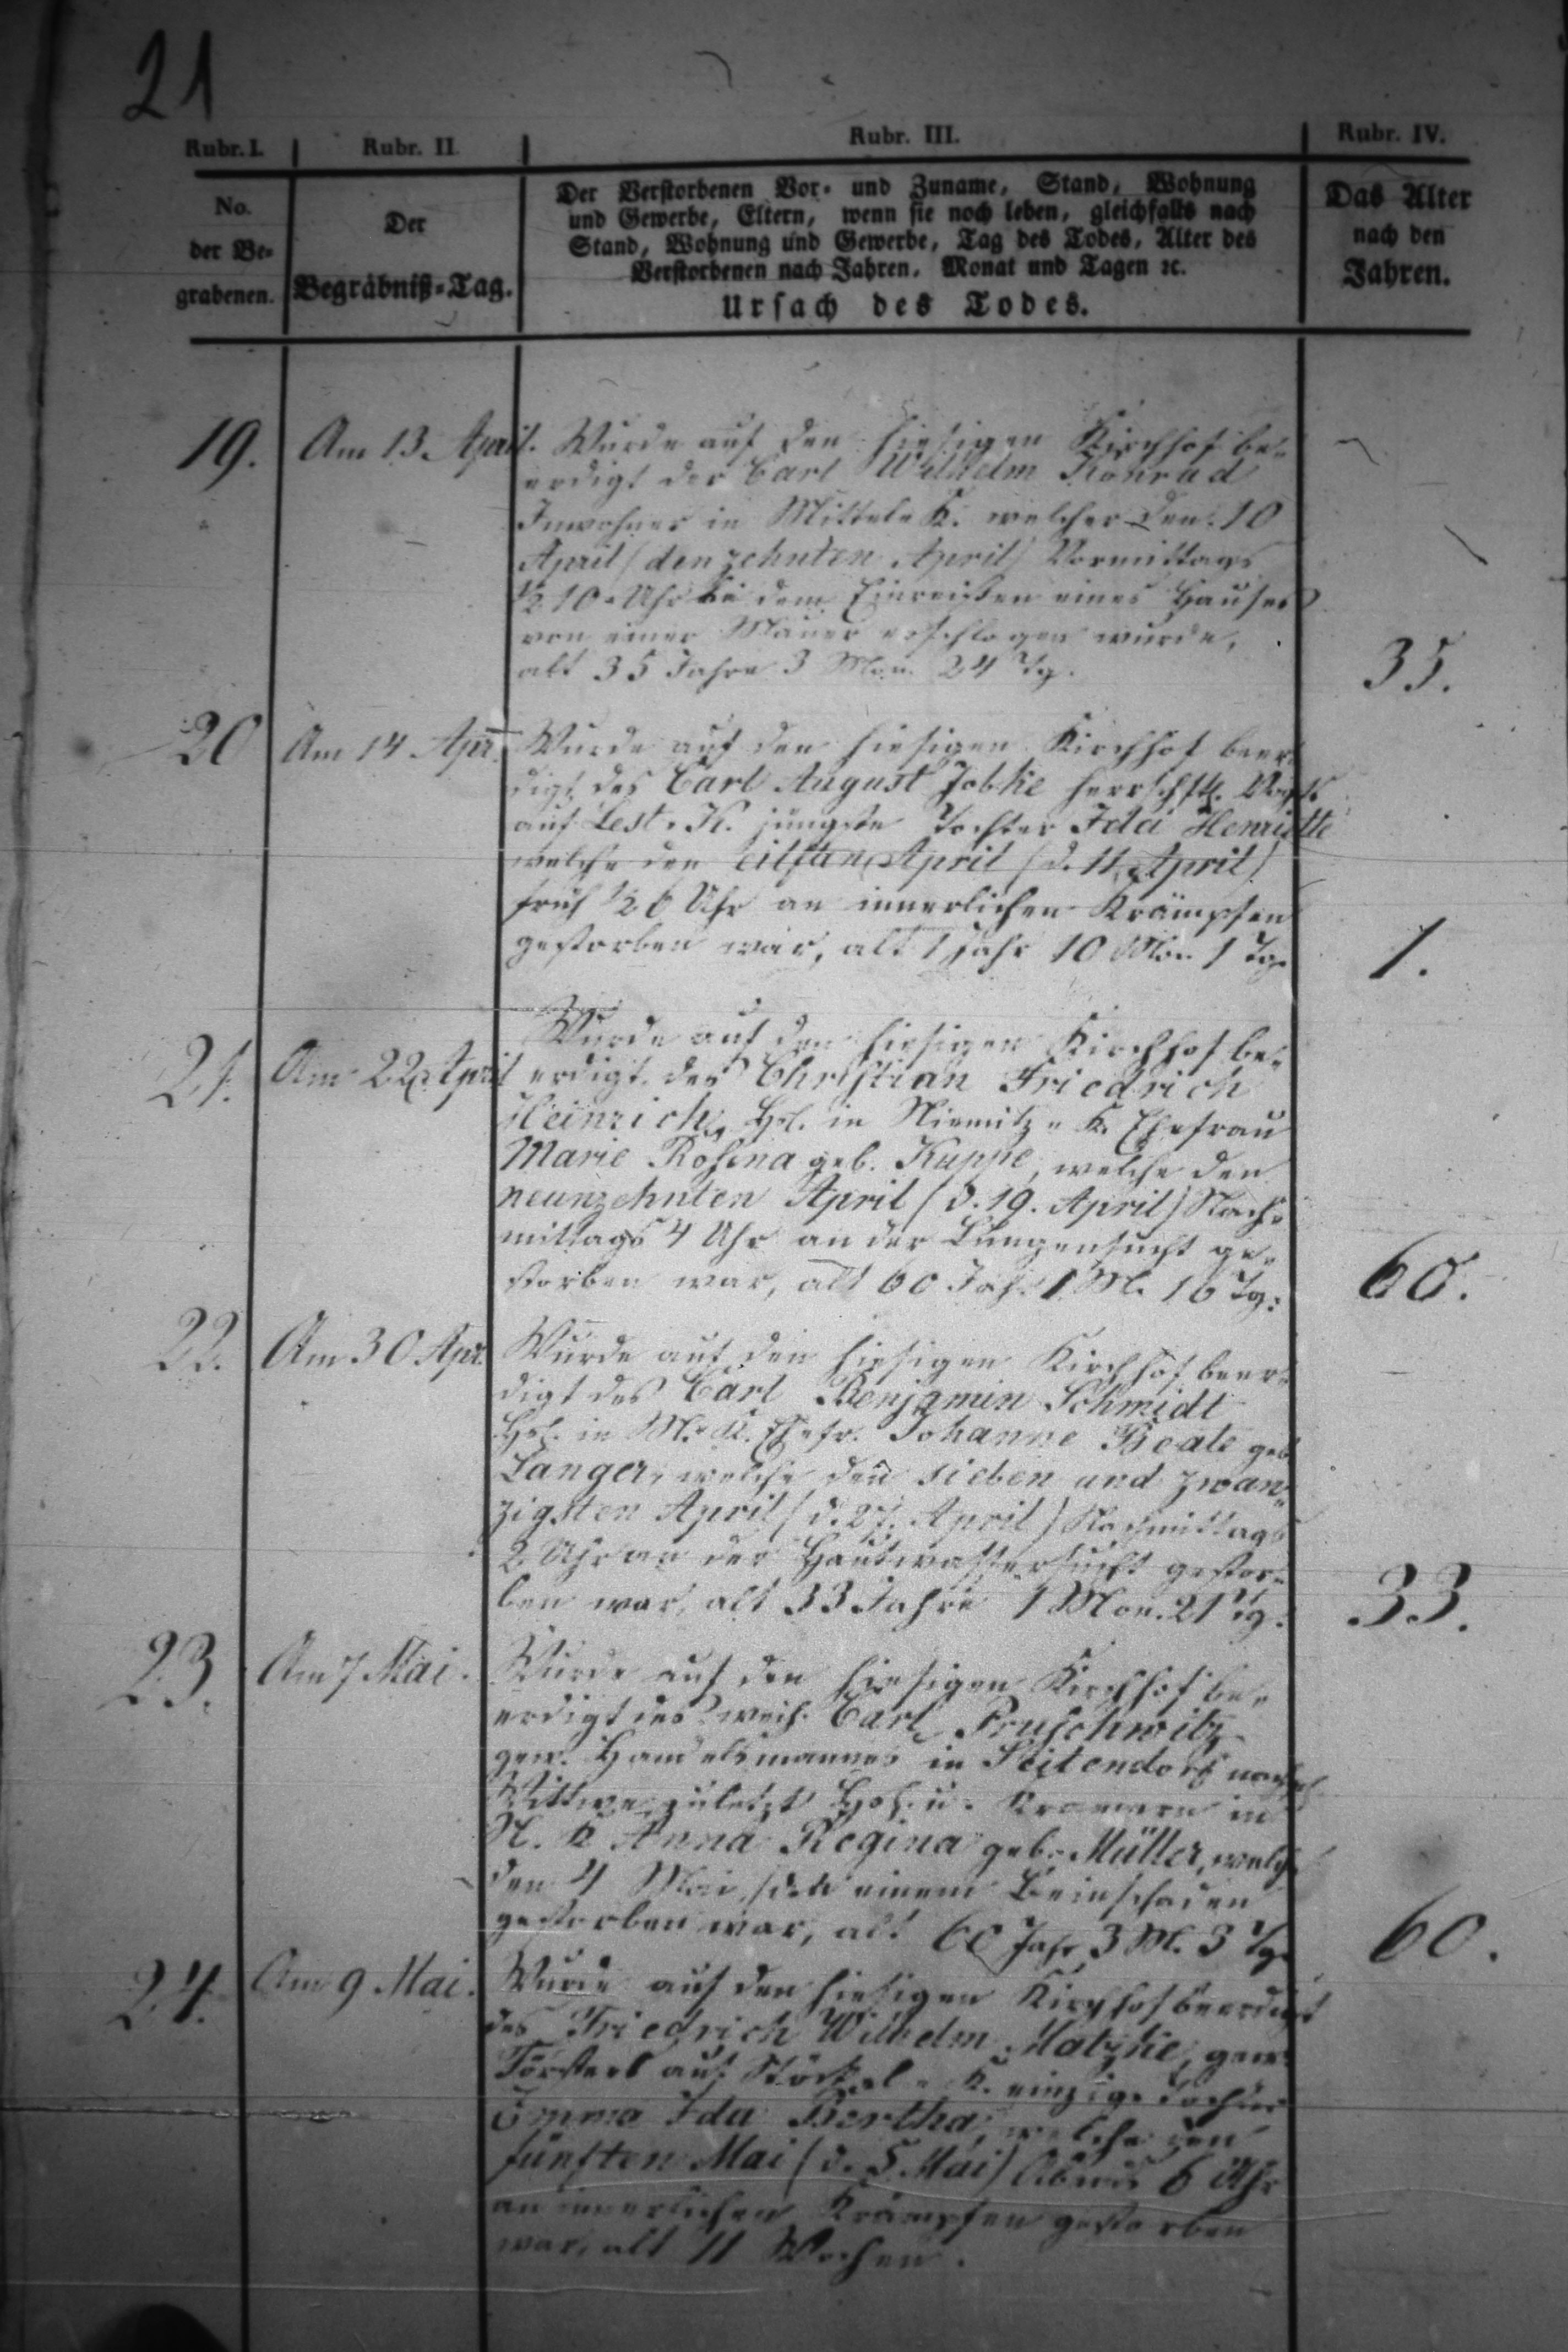 21
Rubr. I. Rubr. II. Rubr. III. Rubr. IV.
No.
der Be-
grabenen.
Der
Begräbniß-Tag.
Der Verstorbenen Vor- und Zuname, Stand, Wohnung
und Gewerbe, Eltern, wenn sie noch leben, gleichfalls nach
Stand, Wohnung und Gewerbe, Tag des Todes, Alter des
Verstorbenen nach Jahren, Monat und Tagen ꝛc.
Ursach des Todes.
Das Alter
nach den
Jahren.
19. Am 13. April. Wurde auf den hiesigen Kirchhof be-
erdigt der Carl Wilhelm Konrad
Inwohner in Mittel K. welcher den 10
April (den zehnten April) Vormittags
½ 10 Uhr bei dem Einreißen eines Hauses
von einer Mauer erschlagen wurde,
alt 35 Jahre 3 Mon. 24 Tg. 35.
20 Am 14 Apr. Wurde auf den hiesigen Kirchhof beer-
digt des Carl August Jobke herrschftl. Vogts
auf Lest. K. jüngste Tochter Ida Henriette
welche den eilften April (d. 11. April)
früh ½ 6 Uhr an innerlichen Krämpfen
gestorben war, alt 1 Jahr 10 Mon. 1 Tg. 1.
21. Am 22. April Wurde auf den hiesigen Kirchhof be-
erdigt des Christian Friedrich
Heinrich, Hsl. in Niemitz-K. Ehefrau
Marie Rosina geb. Kuppe, welche den
neunzehnten April (d. 19. April) Nach-
mittags 4 Uhr an der Lungensucht ge-
storben war, alt 60 Jah. 1 M. 16 Tg. 60.
22. Am 30 Apr. Wurde auf den hiesigen Kirchhof beer-
digt des Carl Benjamin Schmidt
Hsl. in M. K. Ehefr. Johanne Beate geb
Langer, welche den sieben und zwan-
zigsten April (d. 27. April) Nachmittags
2 Uhr an der Hautwassersucht gestor-
ben war, alt 33 Jahre 1 Mon. 21 Tg. 33.
23. Am 7 Mai. Wurde auf den hiesigen Kirchhof be-
erdigt des weil. Carl Pruschwitz
gew. Handelsmannes in Seitendorf
Wittwe zuletzt Hsl. u. in
N. K Anna Regina geb. Müller, welche
den 4 Mai, an einem Beinschaden
gestorben war, alt 60 Jahr 3 M. 3 Tg. 60.
24. Am 9 Mai. Wurde auf den hiesigen Kirchhof beerdigt
des Friedrich Wilhelm Matzke, gew.
Försters auf Stöckel-K. einzige Tochter
Emma Ida Bertha, welche den
fünften Mai (d. 5 Mai) Abends 6 Uhr
an innerlichen Krämpfen gestorben
war, alt 11 Wochen.